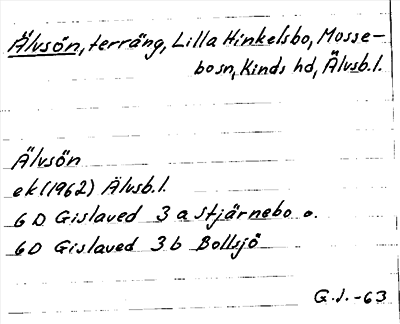 Älvsön, terräng, Lilla Hinkelsbo, Mosse-
bosn, Kinds hd, Älvsb.l.
Älvsön
ek (1962) Älvsb.l.
6 D Gislaved 3 a Stjärnebo o.
6D Gislaved 3 b Bollsjö
G.J.-63